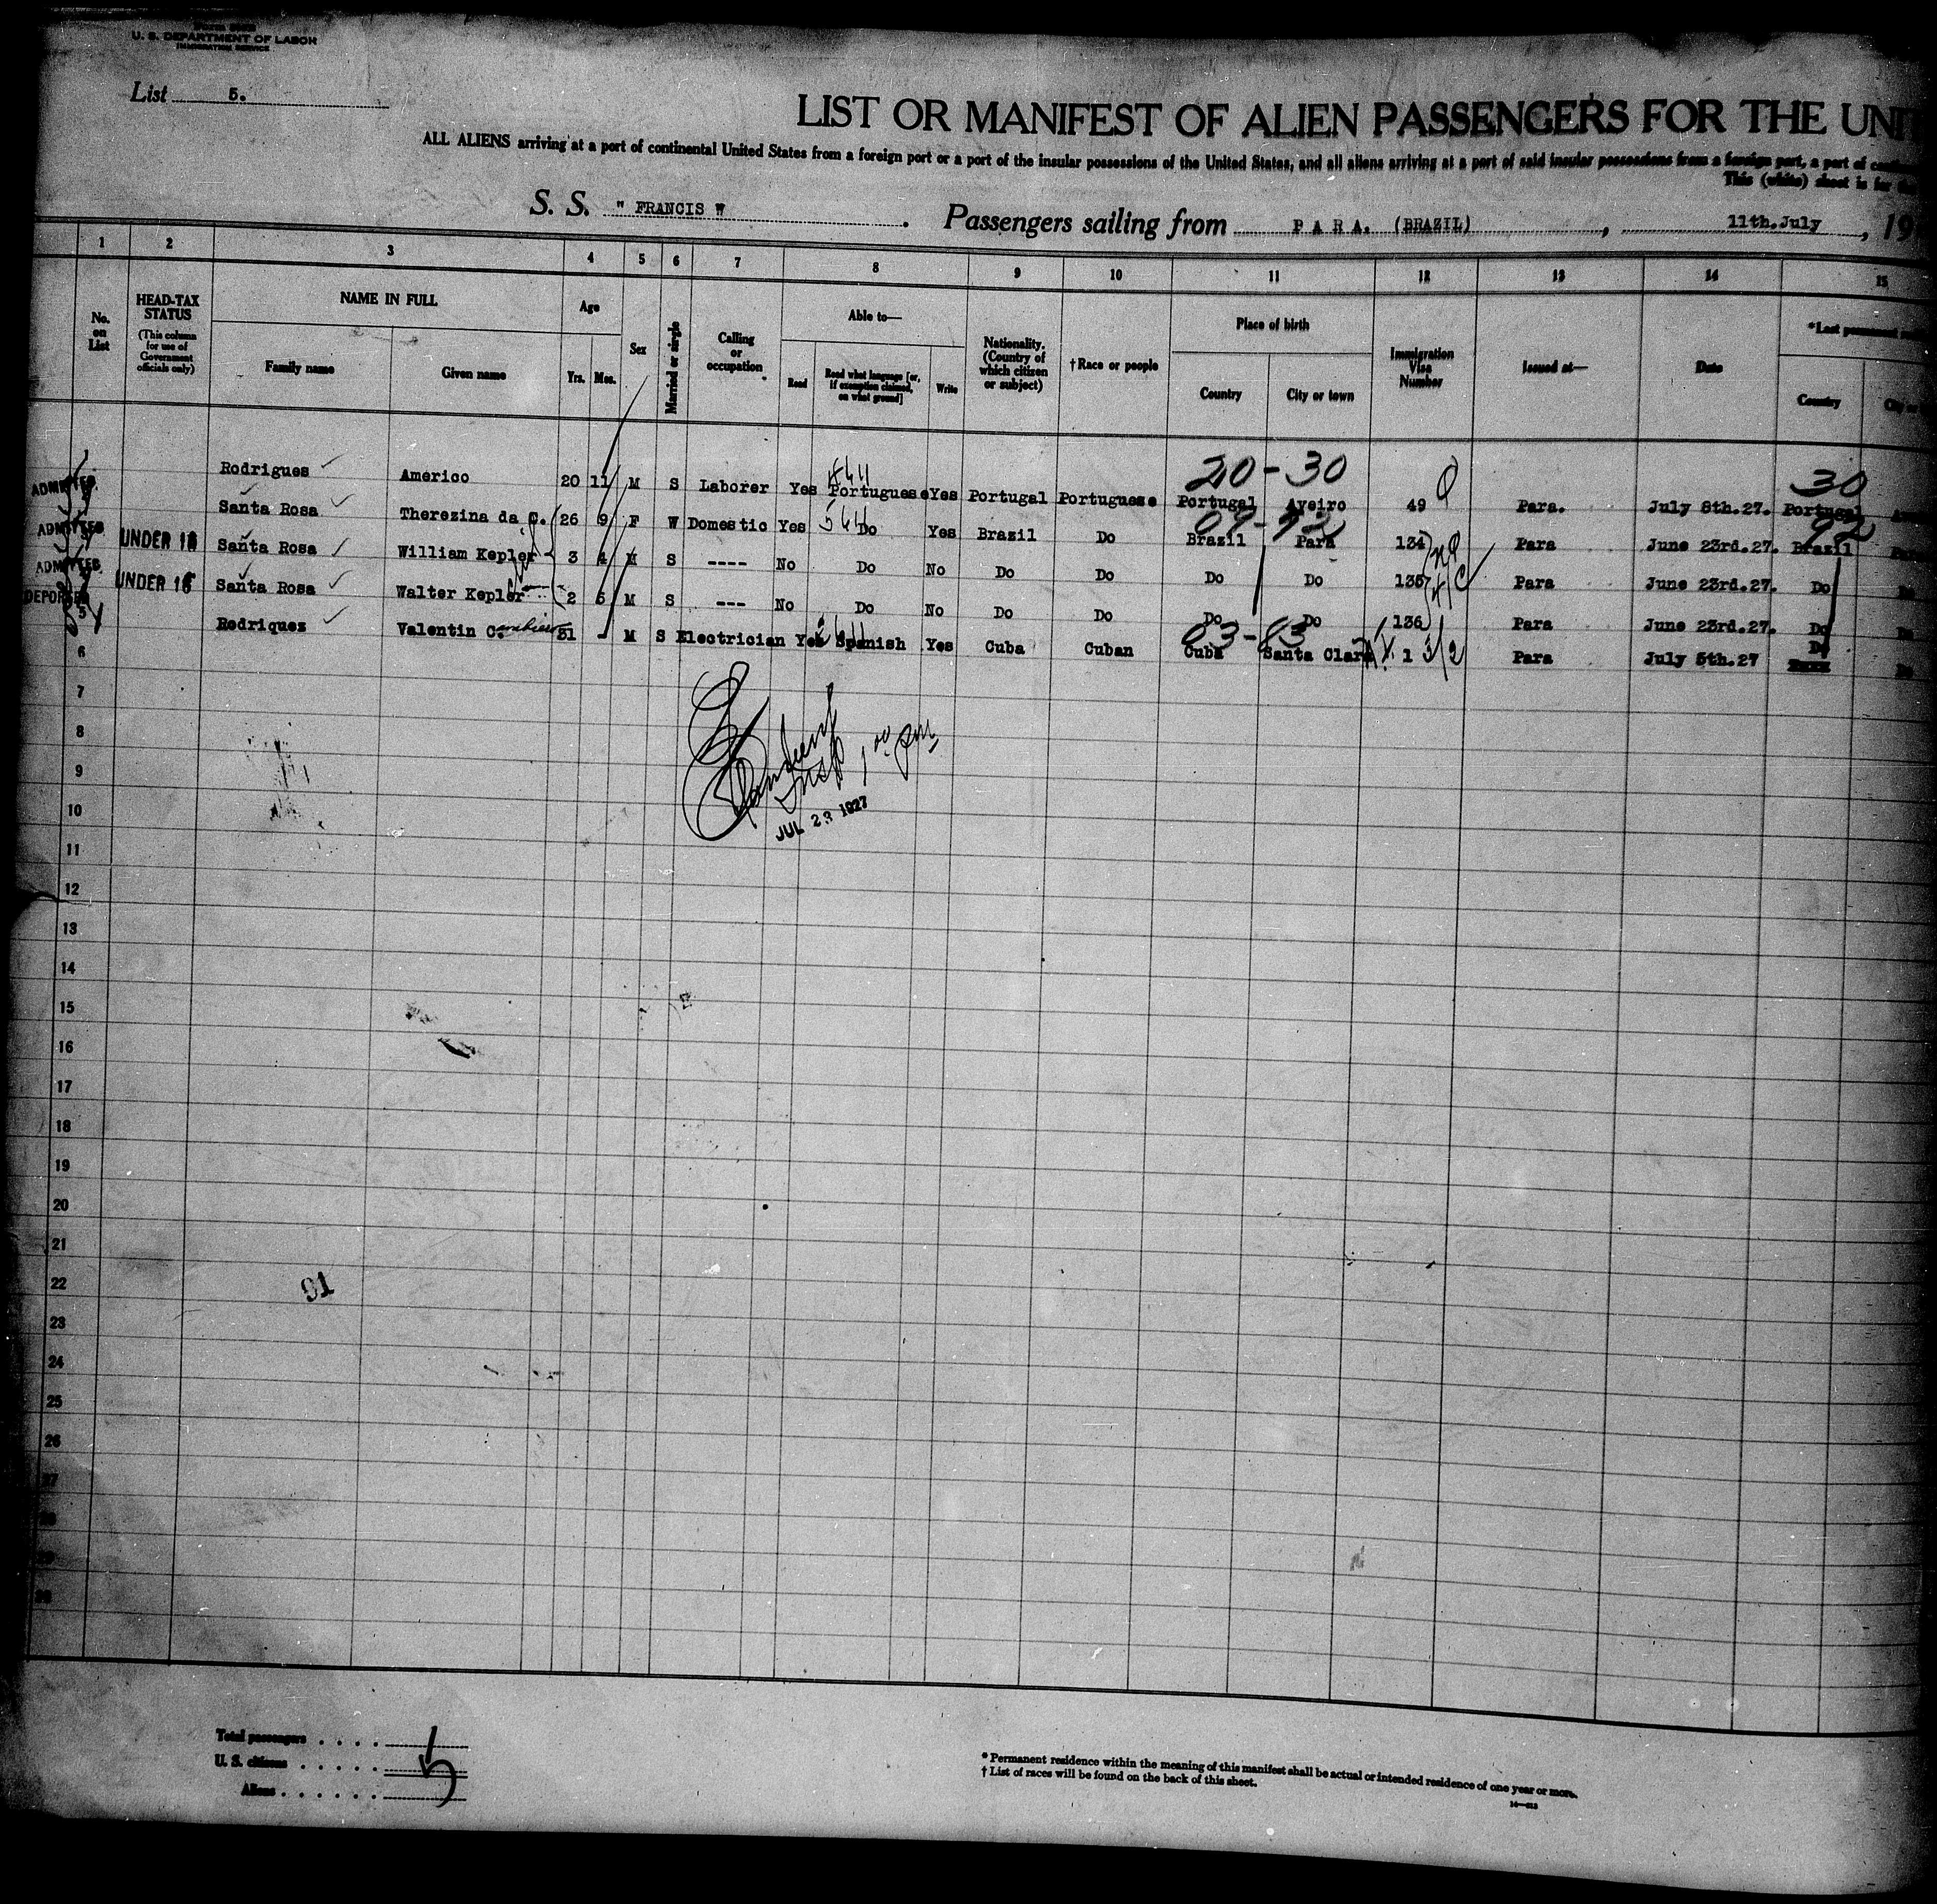 U. S. DEPARTMENT OF LABOR
IMMIGRATION SERVICE
List 5.
LIST OR MANIFEST OF ALIEN PASSENGERS FOR THE UNIT
ALL ALIENS arriving at a port of continental United States from a foreign port or a port of the insular possessions of the United States, and all aliens arriving at a port of said insular possessions from a foreign port, a part of
This (white) sheet is for
S. S. " FRANCIS W . Passengers sailing from P A R A. (BRAZIL) , 11th.July , 19
1 2 3 4 5 6 7 8 9 10 11 12 13 14 15
No. on List
HEAD-TAX STATUS (This column for use of Government officials only)
NAME IN FULL
Family name Given name
Age
Yrs. Mos.
Sex
Married or single
Calling or occupation
Able to—
Read Read what language [or, if exemption claimed, on what ground] Write
Nationality. (Country of which citizen or subject)
†Race or people
Place of birth
Country City or town
Immigration Visa Number
Issued at—
Date
*Last permanent
Country
20-30 30
ADMITTED Rodrigues Americo 20 11 M S Laborer Yes Portuguese Yes Portugal Portuguese Portugal Aveiro 49 Para. July 8th.27. Portugal
ADMITTED Santa Rosa Therezina da C. 26 9 F W Domestic Yes Do Yes Brazil Do Brazil Para 134 Para June 23rd.27. Brazil
ADMITTED UNDER 16 Santa Rosa William Kepler 3 4 M S ---- No Do No Do Do Do Do 135 Para June 23rd.27. Do
UNDER 16 Santa Rosa Walter Kepler 2 5 M S --- No Do No Do Do Do Do 136 Para June 23rd.27. Do
DEPORTED 5 Rodriquez Valentin C. 31 - M S Electrician Yes Spanish Yes Cuba Cuban Cuba Santa Clara 1 Para July 5th.27 Do
03-83
6
7
8
9
Insp 1 00 pm
JUL 23 1927
10
11
12
13
14
15
16
17
18
19
20
21
22
91
23
24
25
26
27
28
29
30
Total passengers . . . .
U. S. citizens . . . . .
Aliens . . . . . .
5
* Permanent residence within the meaning of this manifest shall be actual or intended residence of one year or more.
† List of races will be found on the back of this sheet.